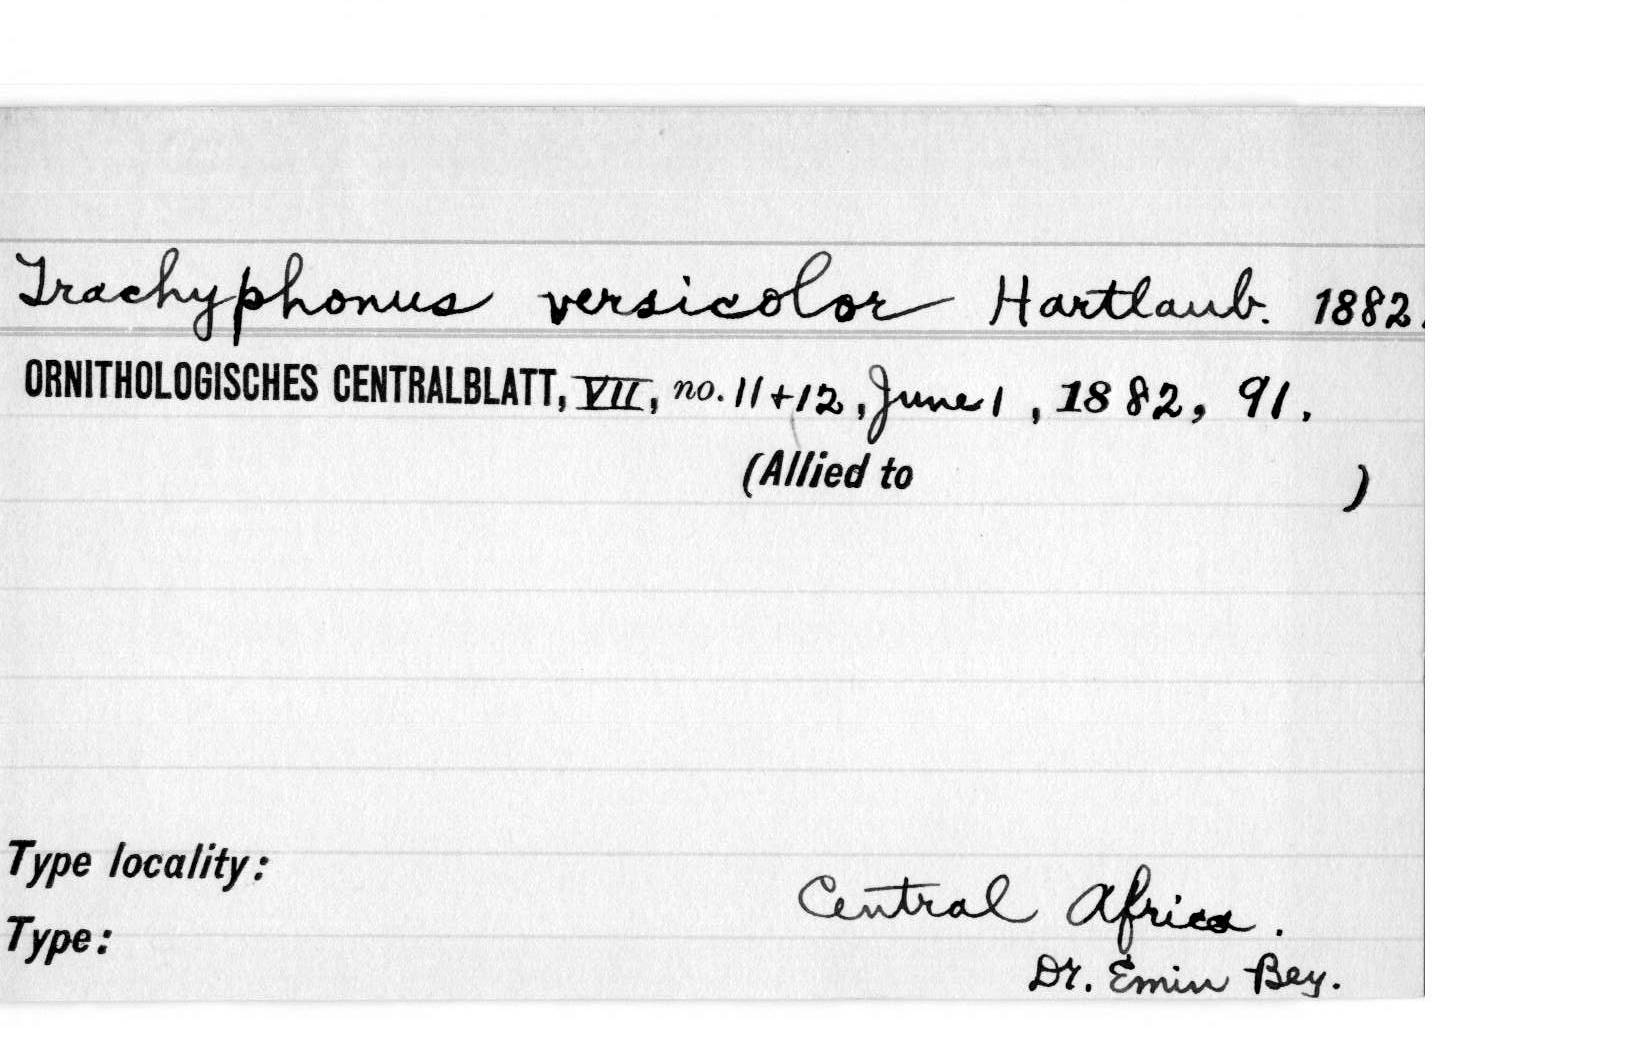 Trachyphonus versicolor Hartlaub. 1882.
ORNITHOLOGISCHES CENTRALBLATT, VII, no. 11+12, June 1, 1882, 91.
(Allied to )
Type locality:
Central Africa.
Type:
Dr. Emin Bey.